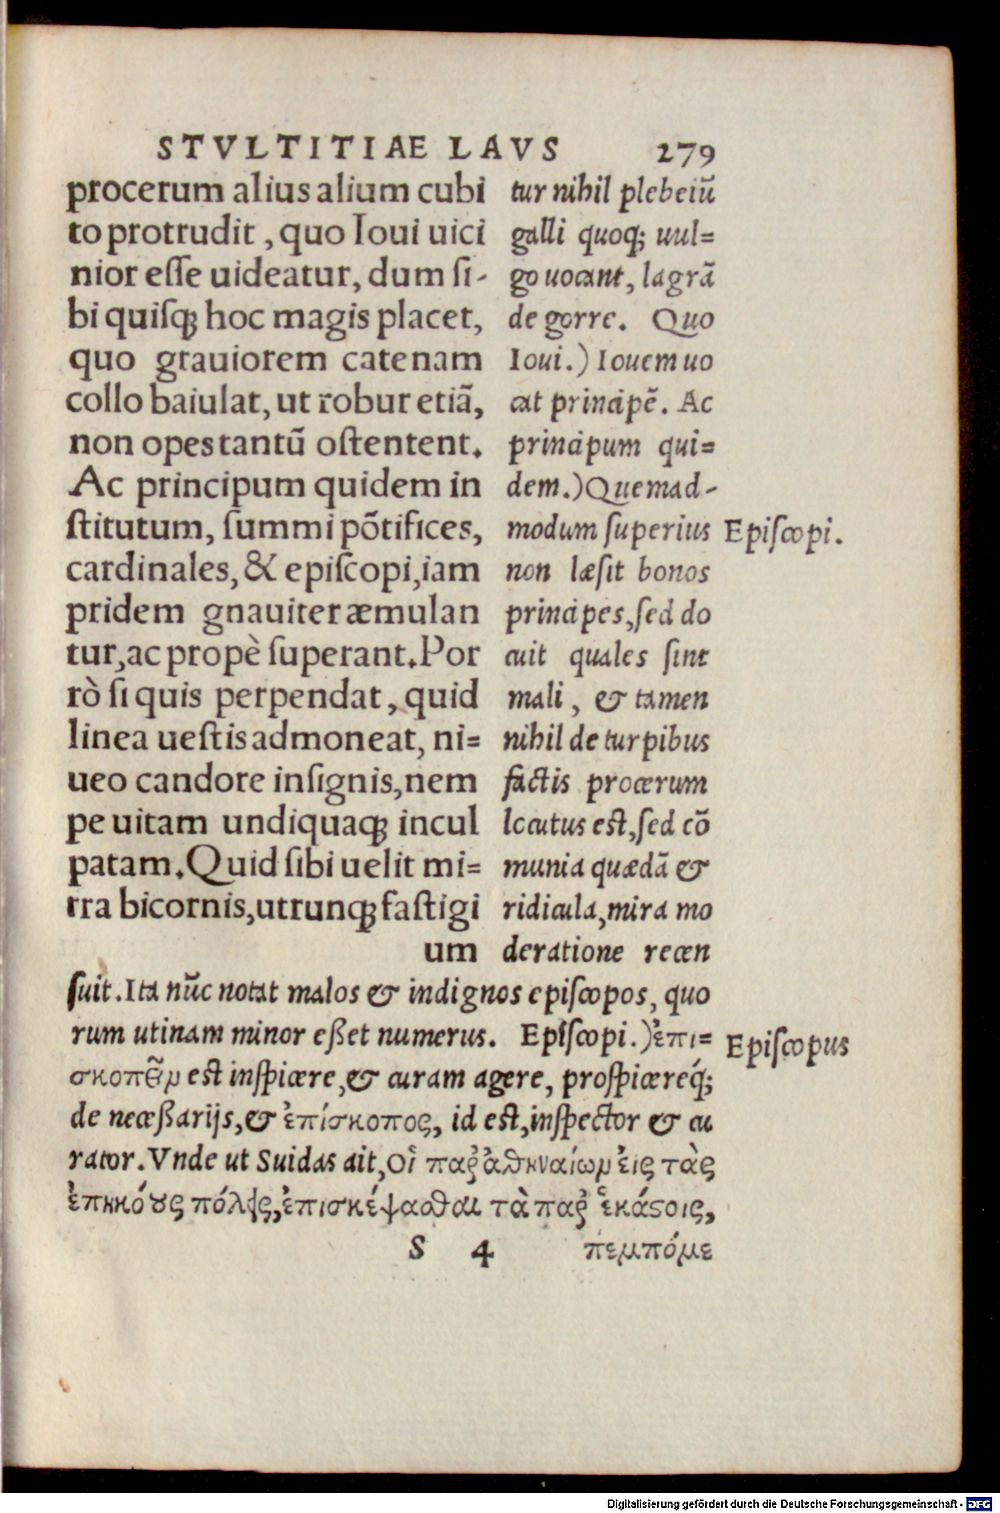 STVLTITIAE LAVS 279
procerum alius alium cubi
to protrudit, quo Ioui uici
nior esse uideatur, dum si-
bi quisq; hoc magis placet,
quo grauiorem catenam
collo baiulat, ut robur etiã,
non opes tantũ ostentent.
Ac principum quidem in
stitutum, summi põtifices,
cardinales, & episcopi, iam
pridem gnauiter æmulan
tur, ac propè superant. Por
rò si quis perpendat, quid
linea uestis admoneat, ni=
ueo candore insignis, nem
pe uitam undiquaq; incul
patam. Quid sibi uelit mi=
tra bicornis, utrunq; fastigi
um
tur nihil plebeiũ
galli quoq; uul=
go uocant, la grã
de gorre. Quo
Ioui.) Iouem uo
cat principẽ. Ac
principum qui=
dem.) Quemad-
modum superius
non læsit bonos
principes, sed do
cuit quales sint
mali, & tamen
nihil de turpibus
factis procerum
locutus est, sed cõ
munia quædã &
ridicula, mira mo
deratione recen
Episcopi.
suit. Ita nũc notat malos & indignos episcopos, quo
rum utinam minor eßet numerus. Episcopi.) ἐπι=
σκοπεῖν est inspicere, & curam agere, prospicereq́;
de neceßarijs, & ἐπίσκοπος, id est, inspector & cu
rator. Vnde ut Suidas ait, Οἱ παρ᾽ ἀθηναίων εἰς τὰς
ἐπηκόους πόλεις, ἐπισκέψασθαι τὰ παρ᾽ ἑκάστοις,
Episcopus
S 4 πεμπόμε
Digitalisierung gefördert durch die Deutsche Forschungsgemeinschaft - DFG